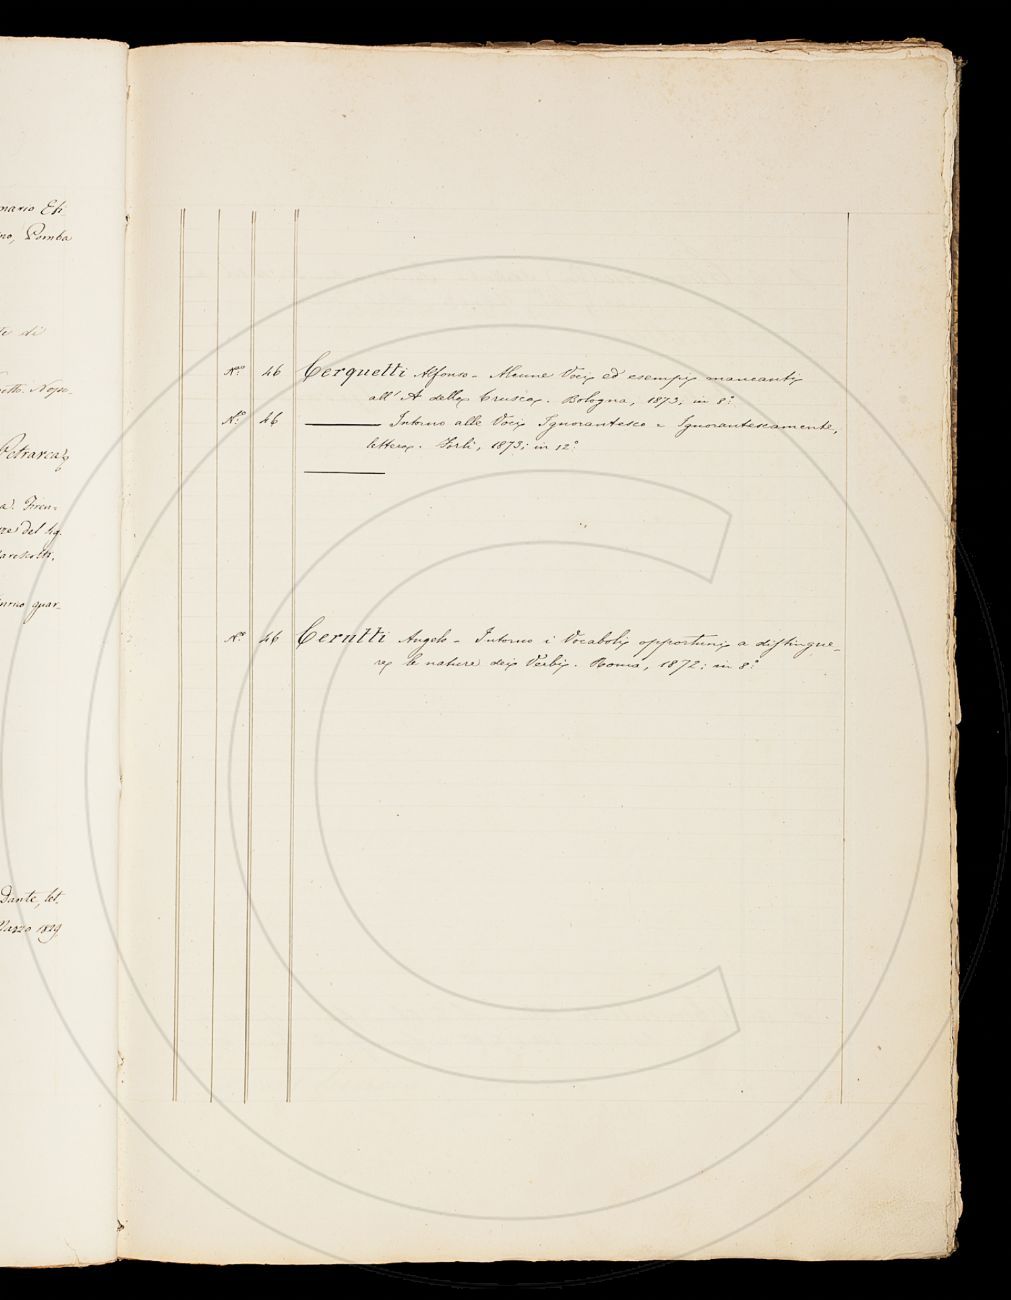 nario Eti
no, Pomba
te di
Petrarca
a. Firen-
re del Sig.
Marescotti,
guar-
Dante, let.
Marzo 1829
No. 46 Cerquetti Alfonso - Alcune Voci ed esempi mancanti
all' A della Crusca. Bologna, 1873, in 8.°
No. 46 ——— Intorno alle Voci Ignorantesco e Ignorantescamente,
lettera. Forlì, 1873; in 12.°
No. 46 Cerutti Angelo - Intorno i Vocaboli opportuni a distingue-
re le nature dei Verbi. Roma, 1872; in 8.°
C